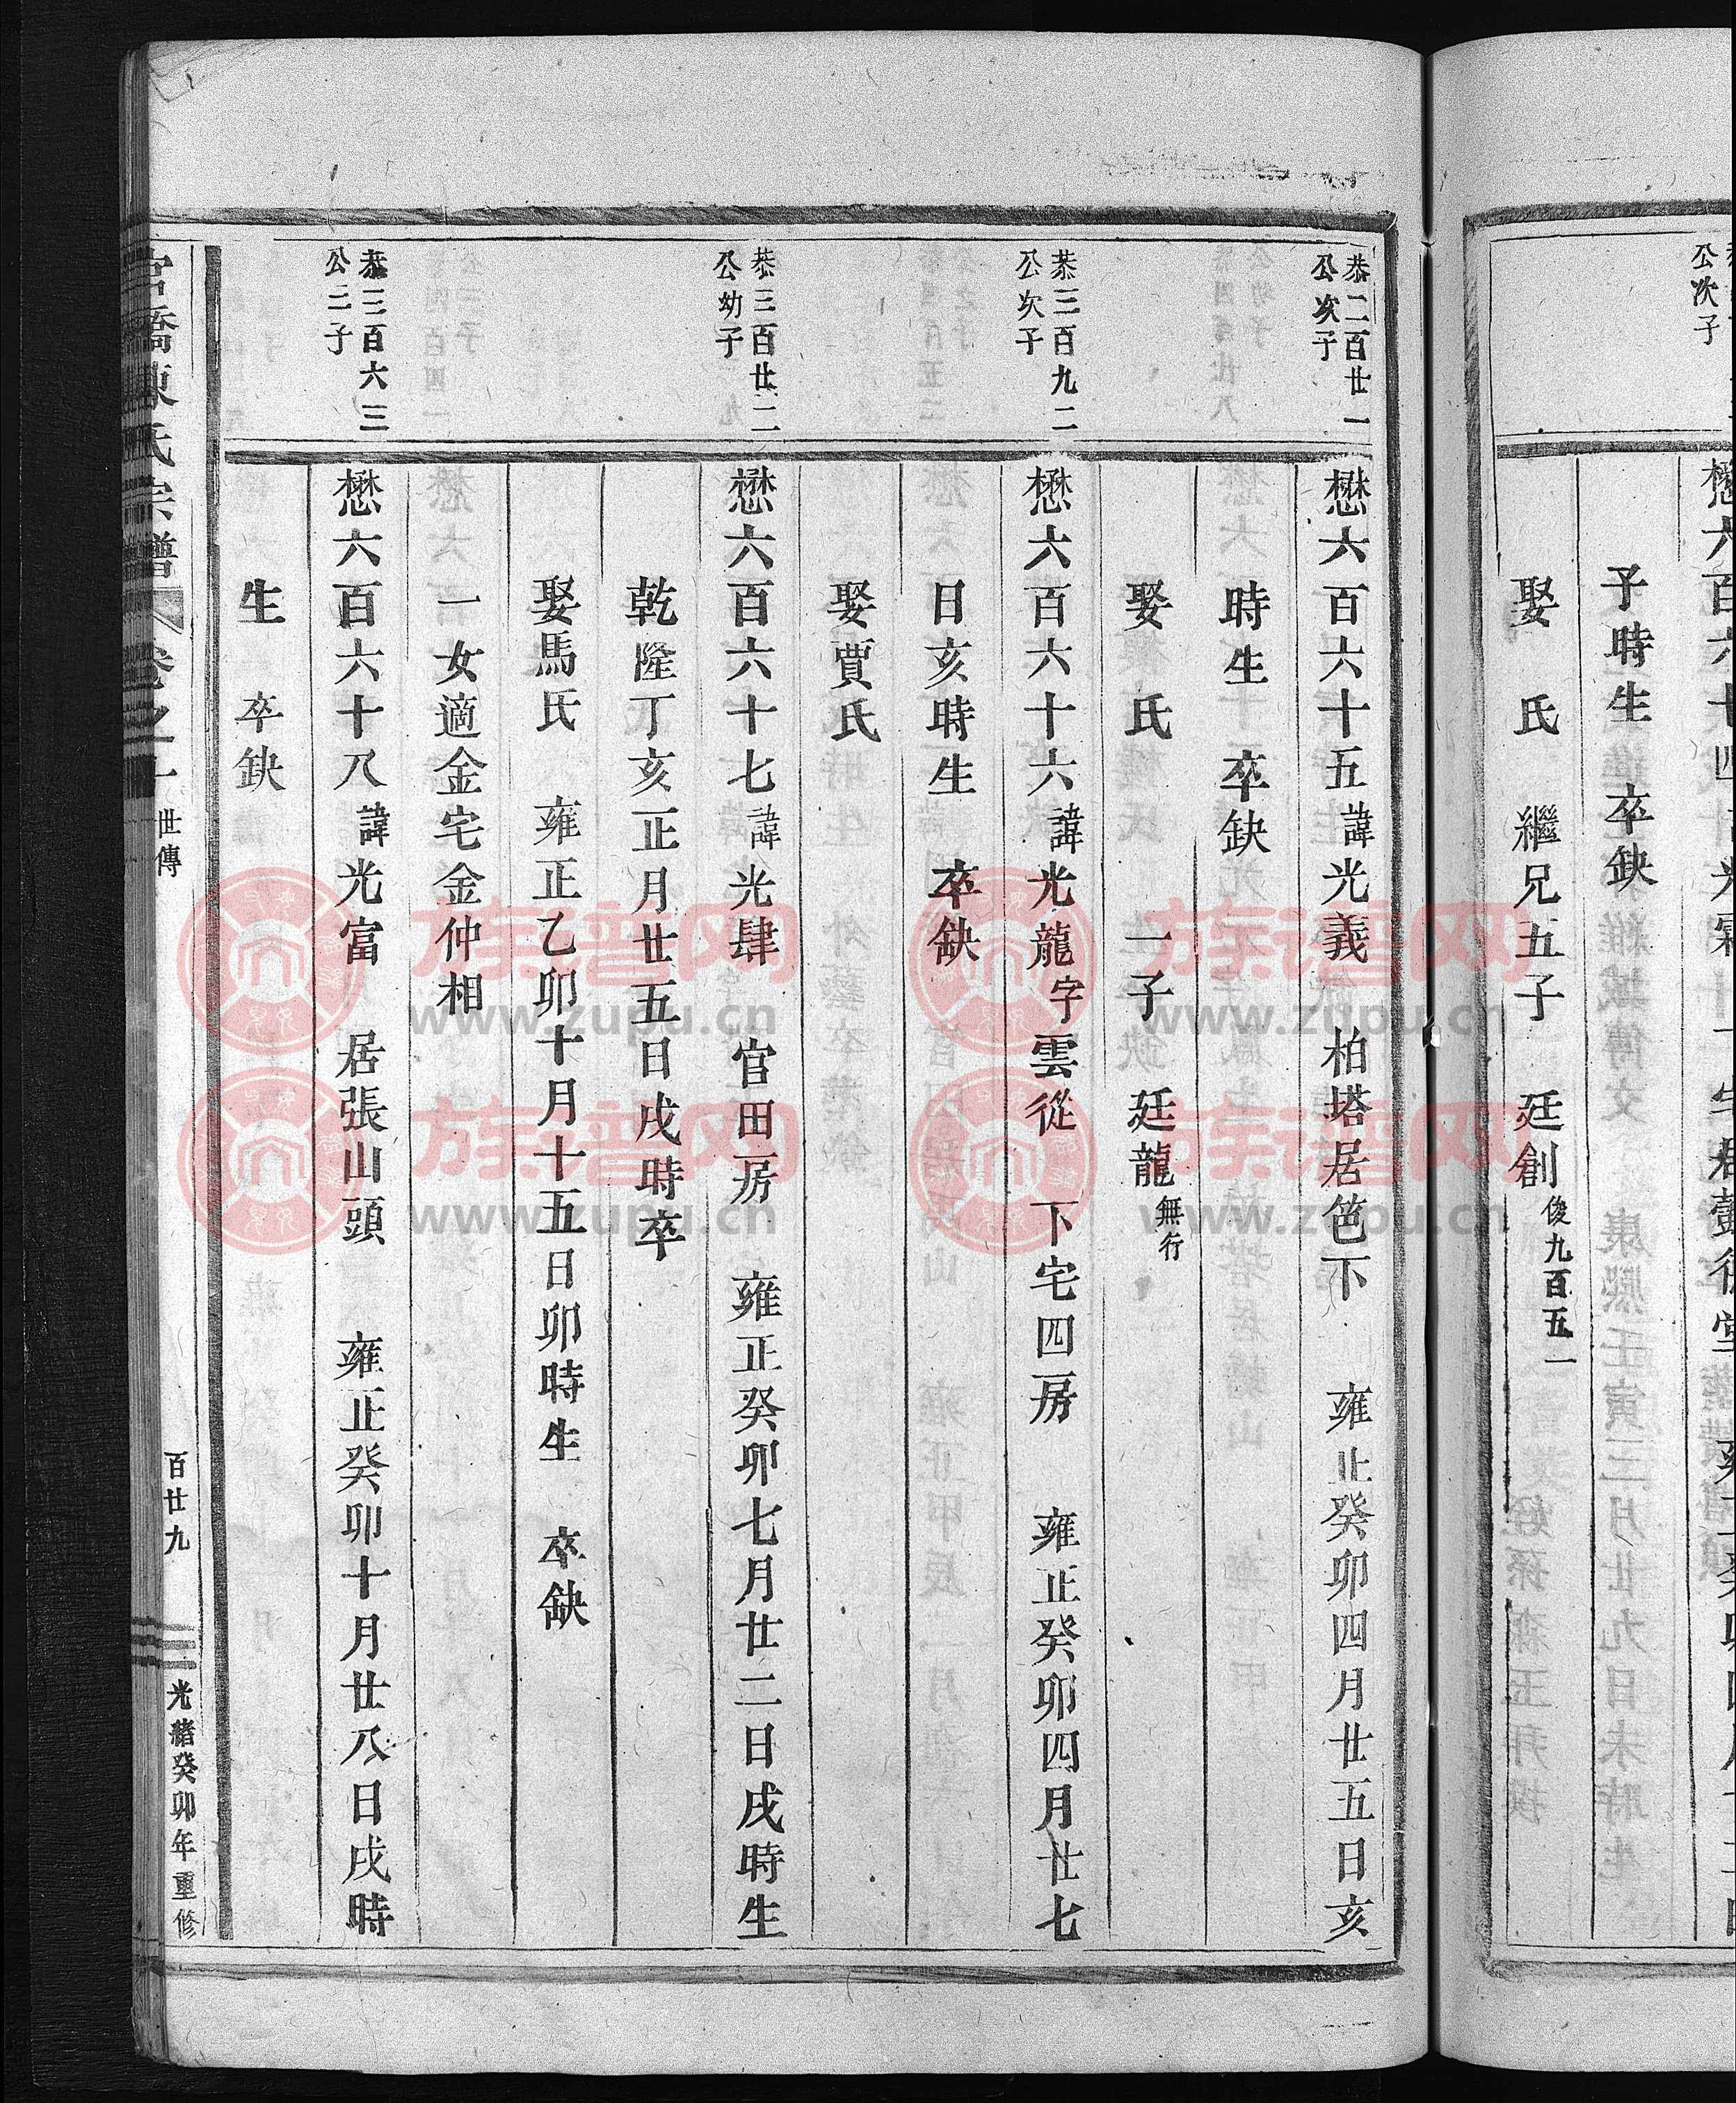 公次子
懋六百六十四
子時生　卒缺　康熙壬寅三月廿九日未時生
娶　氏　繼兄五子　廷創俊九百五一
恭二百廿一
公次子
懋六百六十五諱光義　柏塔居筂下　雍正癸卯四月廿五日亥
時生　卒缺
娶　氏　一子　廷龍無行
恭三百九二
公次子
懋六百六十六諱光龍字雲從　下宅四房　雍正癸卯四月廿七
日亥時生　卒缺
娶賈氏
恭三百廿二
公幼子
懋六百六十七諱光肆　官田房　雍正癸卯七月廿二日戌時生
乾隆丁亥正月廿五日戌時卒
娶馬氏　雍正乙卯十月十五日卯時生　卒缺
一女適金宅金仲相
恭三百六三
公二子
懋六百六十八諱光富　居張山頭　雍正癸卯十月廿八日戌時
生　卒缺
宮橋陳氏宗譜　卷之十　世傳　百廿九　光緒癸卯年重修
族谱网
www.zupu.cn
族谱网
www.zupu.cn
族谱网
www.zupu.cn
族谱网
www.zupu.cn